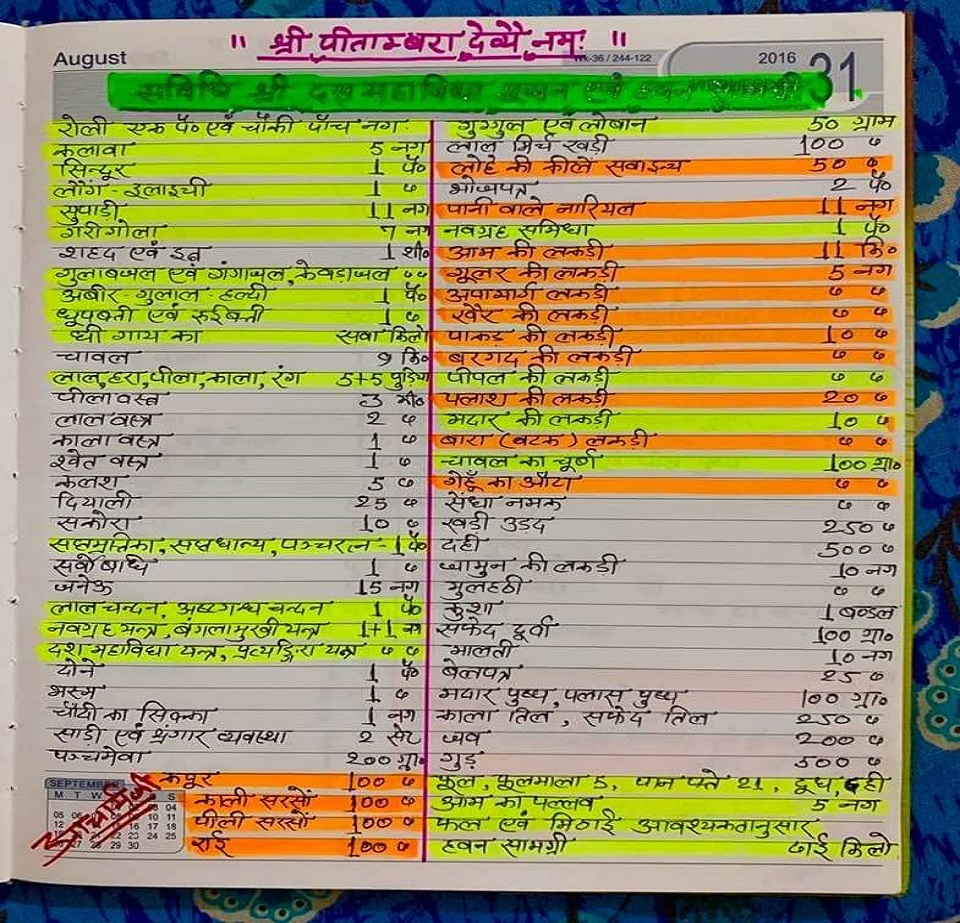 " श्री पीताम्बरा देव्यै नमः "
August
WK-36 / 244-122
2016 31
सविधि श्री दस महाविद्या पूजन एवं हवन सामग्री
रोली एक पै० एवं चौकी पाँच नग
कलावा 5 नग
सिन्दूर 1 पै०
लौंग - इलाइची 1 "
सुपाड़ी 11 नग
गरी गोला 7 नग
शहद एवं इत्र 1 शी०
गुलाबजल एवं गंगाजल, केवड़ाजल " "
अबीर - गुलाल - हल्दी 1 पै०
धूपबत्ती एवं रुईबत्ती 1 "
घी गाय का सवा किलो
चावल 9 कि०
लाल, हरा, पीला, काला, रंग 5+5 पुड़िया
पीला वस्त्र 3 मी०
लाल वस्त्र 2 "
काला वस्त्र 1 "
श्वेत वस्त्र 1 "
कलश 5 "
दियाली 25 "
सकोरा 10 "
सप्तमृत्तिका, सप्तधान्य, पञ्चरत्न - 1 पै०
सर्वोषधि 1 "
जनेऊ 15 नग
लाल चन्दन, अष्टगन्ध चन्दन 1 पै०
नवग्रह यन्त्र, बंगलामुखी यन्त्र 1+1 न
दश महाविद्या यन्त्र, प्रत्यङ्गिरा यन्त्र " "
दोने 1 पै०
भस्म 1 "
चाँदी का सिक्का 1 नग
साड़ी एवं श्रंगार व्यवस्था 2 सेट
पञ्चमेवा 200 ग्रा०
कपूर 100 "
काली सरसों 100 "
पीली सरसों 100 "
राई 100 "
SEPTEMBER
गुग्गुल एवं लोबान 50 ग्राम
लाल मिर्च खड़ी 100 "
लोहे की कीलें सवा इन्च 50 "
भोजपत्र 2 पै०
पानी वाले नारियल 11 नग
नवग्रह समिधा 1 पै०
आम की लकड़ी 11 कि०
गूलर की लकड़ी 5 नग
अपामार्ग लकड़ी " "
खैर की लकड़ी " "
पाकड़ की लकड़ी 10 "
बरगद की लकड़ी " "
पीपल की लकड़ी " "
पलाश की लकड़ी 20 "
मदार की लकड़ी 10 "
बारा (वटक) लकड़ी " "
चावल का चूर्ण 100 ग्रा०
गेहूँ का आँटा " "
सेंधा नमक " "
खड़ी उड़द 250 "
दही 500 "
जामुन की लकड़ी 10 नग
मुलहठी " "
कुशा 1 बण्डल
सफेद दूर्वा 100 ग्रा०
मालती 10 नग
बेलपत्र 25 "
मदार पुष्प, पलास पुष्प 100 ग्रा०
काला तिल, सफेद तिल 250 "
जव 200 "
गुड़ 500 "
फूल, फूलमाला 5, पान पत्ते 21, दूध, दही
आम का पल्लव 5 नग
फल एवं मिठाई आवश्यकतानुसार
हवन सामग्री ढाई किलो